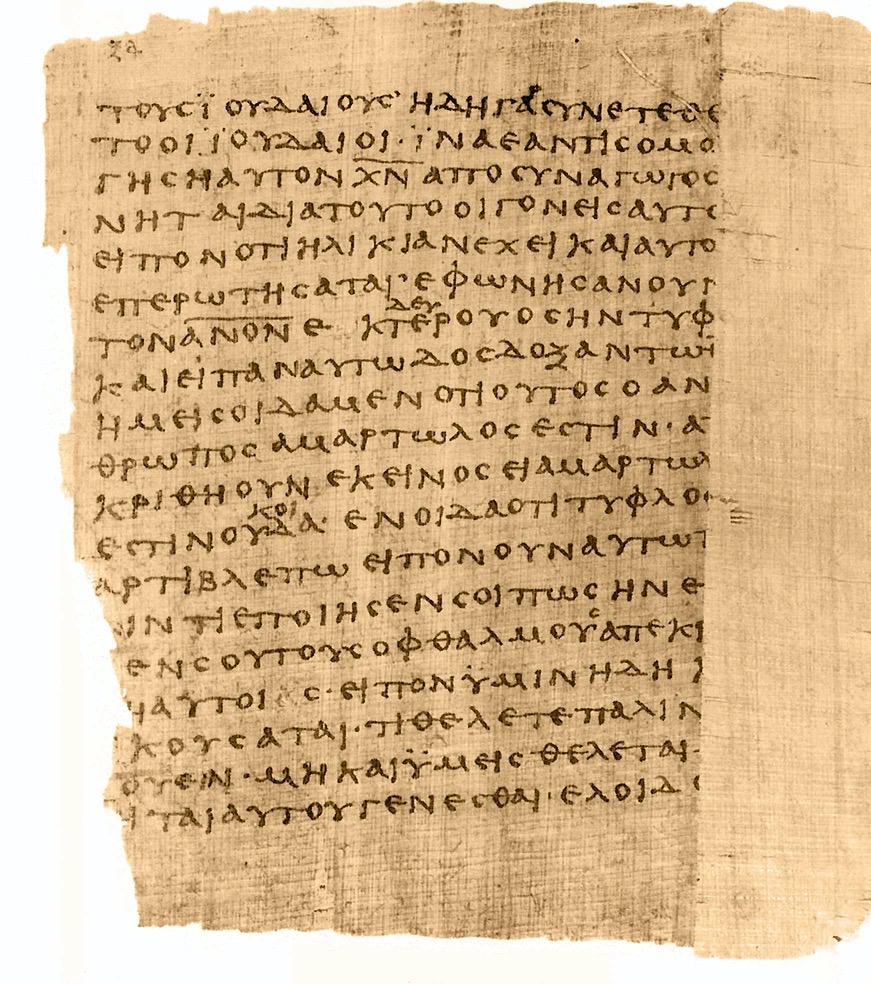 ΤΟΥCΪΟΥΔΑΙΟΥC' ΗΔΗΓΑΡCΥΝΕΤΕΘΕ
ΤΟΟΙΪΟΥΔΑΙΟΙ·ΪΝΑΕΑΝΤΙCΟΜΟ
ΓΗCΗΑΥΤΟΝΧ̅Ν̅ΑΠΟCΥΝΑΓΩΓΟC
ΝΗΤΑΙΔΙΑΤΟΥΤΟΟΙΓΟΝΕΙCΑΥΤΟ
ΕΙΠΟΝΟΤΙΗΛΙΚΙΑΝΕΧΕΙΚΑΙΑΥΤΟ
ΕΠΕΡΩΤΗCΑΤΑΙ·ΕΦΩΝΗCΑΝΟΥΝ
ΤΟΝΑ̅Ν̅Ο̅Ν̅ΕΚΔΕΥΤΕΡΟΥΟCΗΝΤΥΦ
ΚΑΙΕΙΠΑΝΑΥΤΩΔΟCΔΟΞΑΝΤΩ
ΗΜΕΙCΟΙΔΑΜΕΝΟΤΙΟΥΤΟCΟΑΝ
ΘΡΩΠΟCΑΜΑΡΤΩΛΟCΕCΤΙΝ·Α
ΚΡΙΘΗΟΥΝΕΚΕΙΝΟCΕΙΑΜΑΡΤΩΛ
ΕCΤΙΝΟΥΚΟΙΔΑ·ΕΝΟΙΔΑΟΤΙΤΥΦΛΟ
ΑΡΤΙΒΛΕΠΩΕΙΠΟΝΟΥΝΑΥΤΩΤ
ΙΝΤΙΕΠΟΙΗCΕΝCΟΙΠΩCΗΝΕ
ΕΝCΟΥΤΟΥCΟΦΘΑΛΜΟΥCΑΠΕΚΡ
ΗΑΥΤΟΙC·ΕΙΠΟΝΫΜΙΝΗΔΗ
ΚΟΥCΑΤΑΙ·ΤΙΘΕΛΕΤΕΠΑΛΙΝ
ΟΥΕΙΝ·ΜΗΚΑΙΫΜΕΙCΘΕΛΕΤΑΙ
ΤΑΙΑΥΤΟΥΓΕΝΕCΘΑΙ·ΕΛΟΙΔΟ